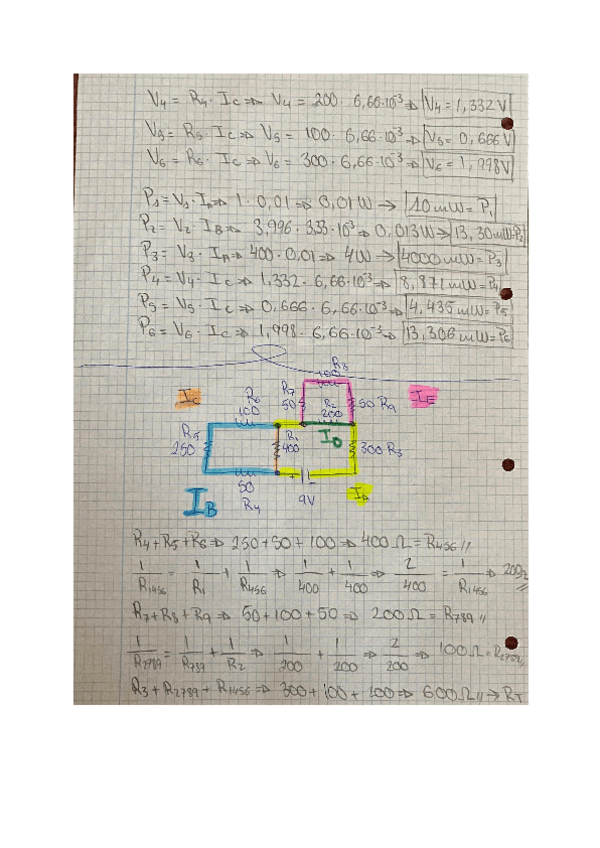 V4 = R4 · Ic => V4 = 200 · 6,66·10^-3 => V4 = 1,332 V
V5 = R5 · Ic => V5 = 100 · 6,66·10^-3 => V5 = 0,666 V
V6 = R6 · Ic => V6 = 300 · 6,66·10^-3 => V6 = 1,998V
P1 = V1 · IA => 1 · 0,01 => 0,01 W → 10 mW = P1
P2 = V2 · IB => 3,996 · 3,33·10^-3 => 0,013 W => 13,30 mW = P2
P3 = V3 · IA => 400 · 0,01 => 4W → 4000 mW = P3
P4 = V4 · Ic => 1,332 · 6,66·10^-3 => 8,871 mW = P4
P5 = V5 · Ic => 0,666 · 6,66·10^-3 => 4,435 mW = P5
P6 = V6 · Ic => 1,998 · 6,66·10^-3 => 13,306 mW = P6
R8
100
Ic
R6
100
R7
50
R2
200
50 R9
IE
R5
250
R1
400
ID
300 R3
IB
50
R4
+ -
9V
IA
R4 + R5 + R6 => 250 + 50 + 100 => 400 Ω = R456 //
1/R1456 = 1/R1 + 1/R456 => 1/400 + 1/400 => 2/400 = 1/R1456 => 200Ω //
R7 + R8 + R9 => 50 + 100 + 50 => 200 Ω = R789 //
1/R2789 = 1/R789 + 1/R2 => 1/200 + 1/200 => 2/200 => 100 Ω = R2789 //
R3 + R2789 + R1456 => 300 + 100 + 100 => 600 Ω // → RT